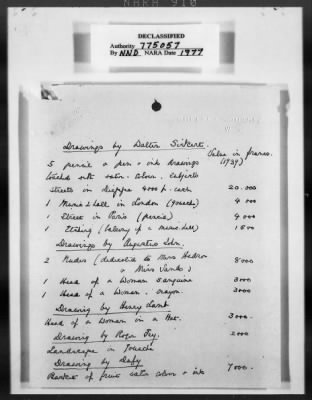 NARA 910
DECLASSIFIED
Authority 775057
By NND NARA Date 1977
Drawings by Walter Sickert.
Value in francs.
(1939)
5 pencil & pen & ink drawings
touched with water-colour. subjects
streets in Dieppe 4000 f. each 20.000
1 Music Hall in London (gouache) 4 000
1 Street in Paris (pencil) 4 000
1 Etching (balcony of a music-hall) 1 500
Drawings by Augustus John.
2 Nudes (dedicated to Miss
& Miss ) 8 000
1 Head of a Woman sanguine 3000
1 Head of a Woman. crayon. 3000
Drawing by Henry Lamb
Head of a Woman in a Hat. 3.000
Drawing by Roger Fry. 2 000
Landscape in gouache
Drawing by Dufy
Basket of fruit water colour & ink 7 000.